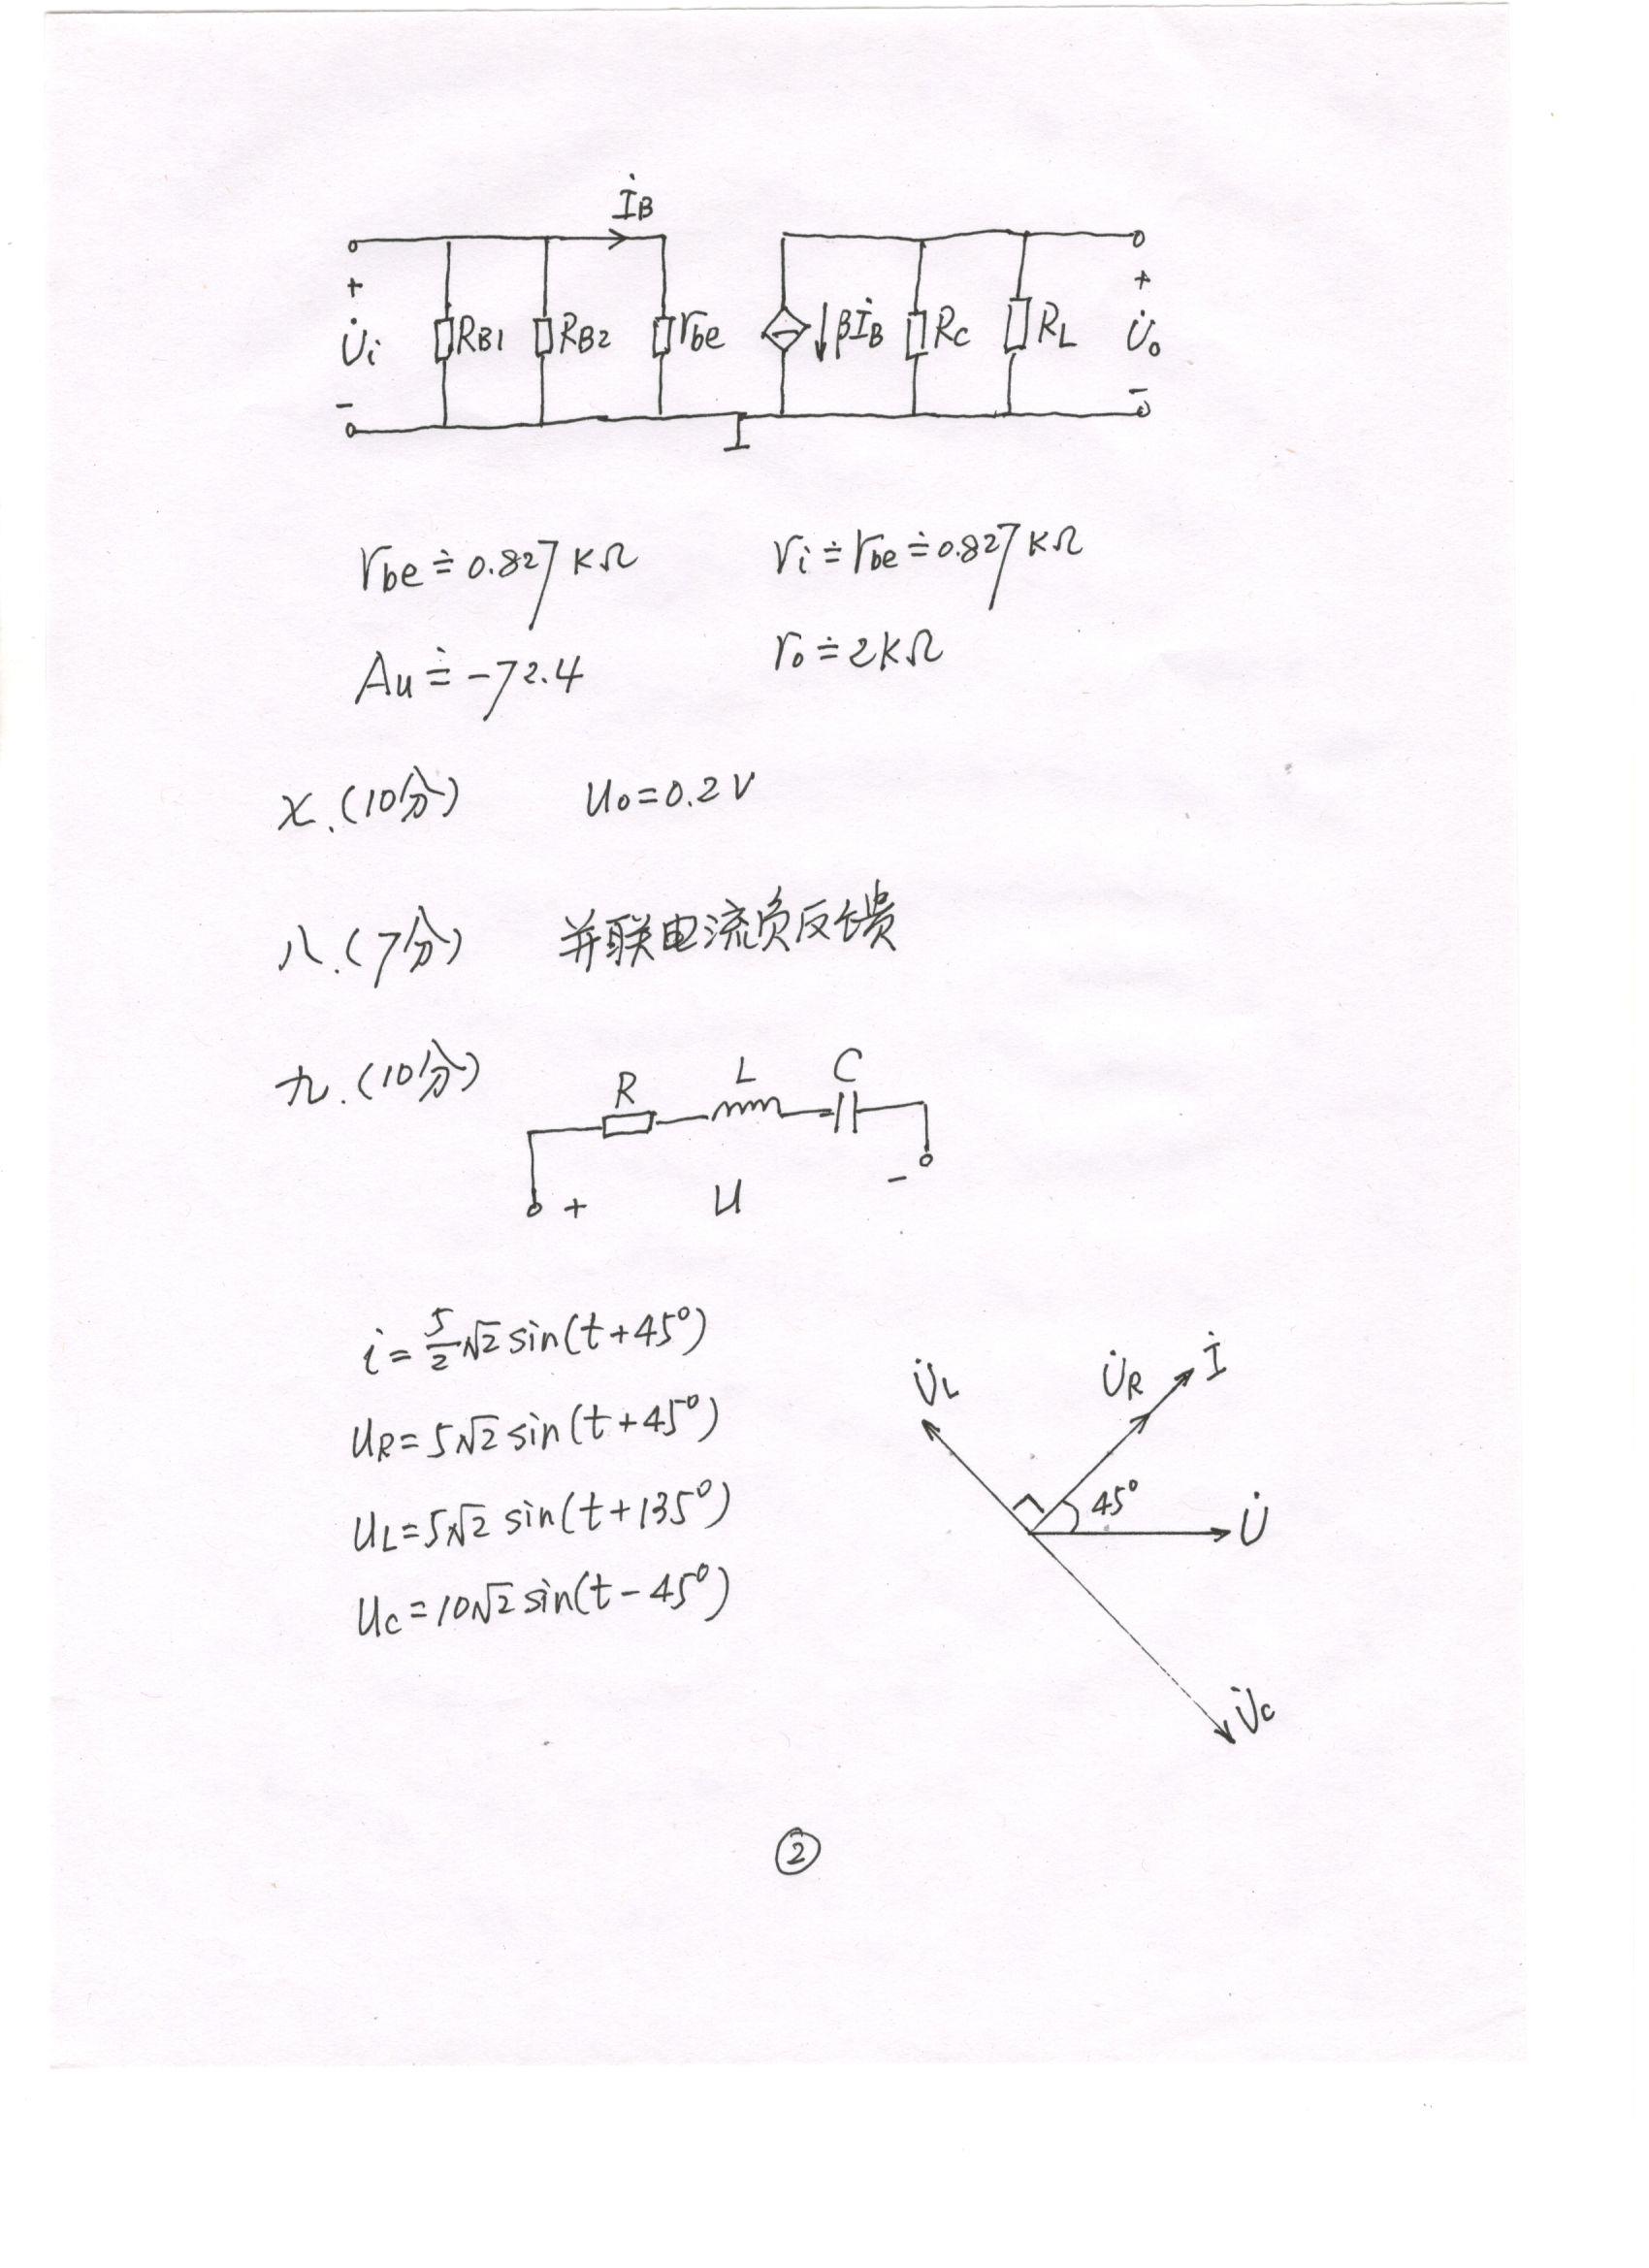 İB
+ + 
U̇i RB1 RB2 rbe βİB RC RL U̇o
- -
rbe≐0.827KΩ ri≐rbe≐0.827KΩ
Au≐-72.4 ro≐2KΩ
七.(10分) uo=0.2V
八.(7分) 并联电流负反馈
九.(10分) R L C
+ U -
i=5/2√2sin(t+45°)
UR=5√2sin(t+45°)
UL=5√2sin(t+135°)
UC=10√2sin(t-45°)
U̇L U̇R İ
45° U̇
U̇C
②